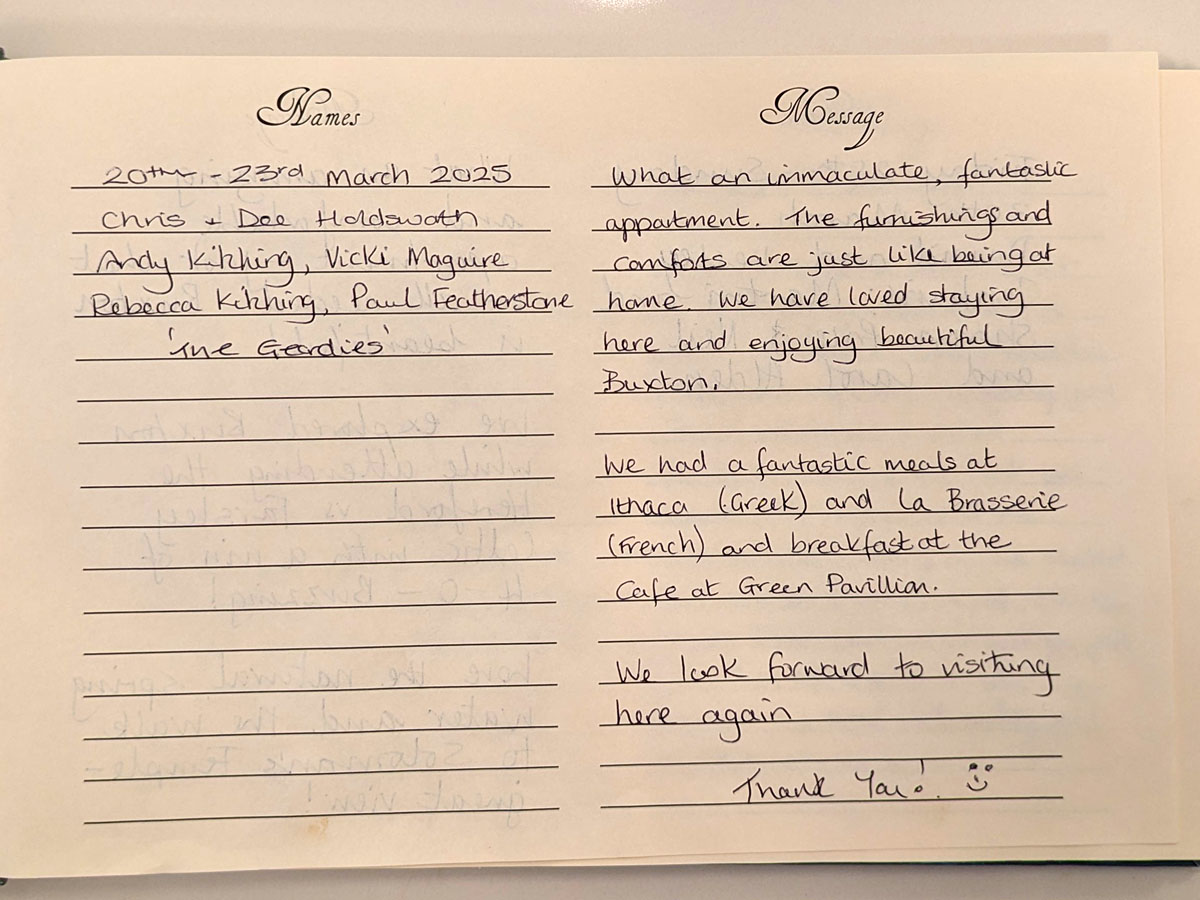 Names
20th - 23rd March 2025
Chris + Dee Holdsworth
Andy Kitching, Vicki Maguire
Rebecca Kitching, Paul Featherstone
'The Geordies'
Message
What an immaculate, fantastic
appartment. The furnishings and
comforts are just like being at
home. We have loved staying
here and enjoying beautiful
Buxton.
We had a fantastic meals at
Ithaca (Greek) and La Brasserie
(French) and breakfast at the
Cafe at Green Pavillion.
We look forward to visiting
here again
Thank You!